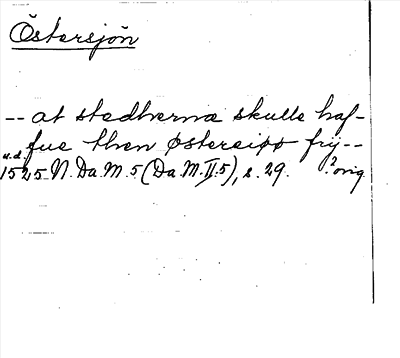 Östersjön
-- at stædherna skulle haf-
fue then østersiøø frij--
u.d.
1525 N. Da. M. 5 (Da. M. II:5), s. 29. ? orig